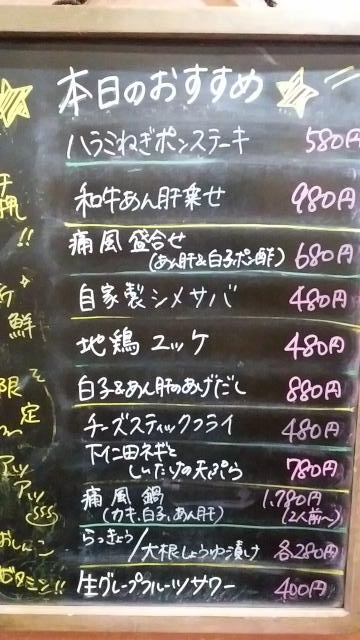 本日のおすすめ
ハラミねぎポンステーキ 580円
和牛あん肝乗せ 980円
痛風盛合せ
(あん肝&白子ポン酢) 680円
自家製シメサバ 480円
地鶏ユッケ 480円
白子&あん肝のあげだし 880円
チーズスティックフライ 480円
下仁田ネギと
しいたけの天ぷら 780円
痛風鍋 1,780円
(カキ、白子、あん肝) (2人前〜)
らっきょう
/大根しょうゆ漬け 各280円
生グレープフルーツサワー 400円
!!
鮮
限定
アッ
アッ
おしんこ
ビタミン!!